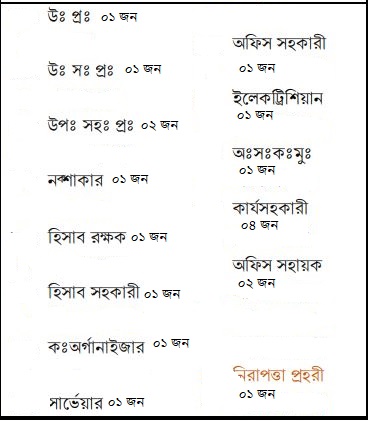 উঃ প্রঃ ০১ জন
উঃ সঃ প্রঃ ০১ জন
উপঃ সহঃ প্রঃ ০২ জন
নক্শাকার ০১ জন
হিসাব রক্ষক ০১ জন
হিসাব সহকারী ০১ জন
কঃঅর্গানাইজার ০১ জন
সার্ভেয়ার ০১ জন
অফিস সহকারী
০১ জন
ইলেকট্রিশিয়ান
০১ জন
অঃসঃকঃমুঃ
০১ জন
কার্যসহকারী
০৪ জন
অফিস সহায়ক
০২ জন
নিরাপত্তা প্রহরী
০১ জন